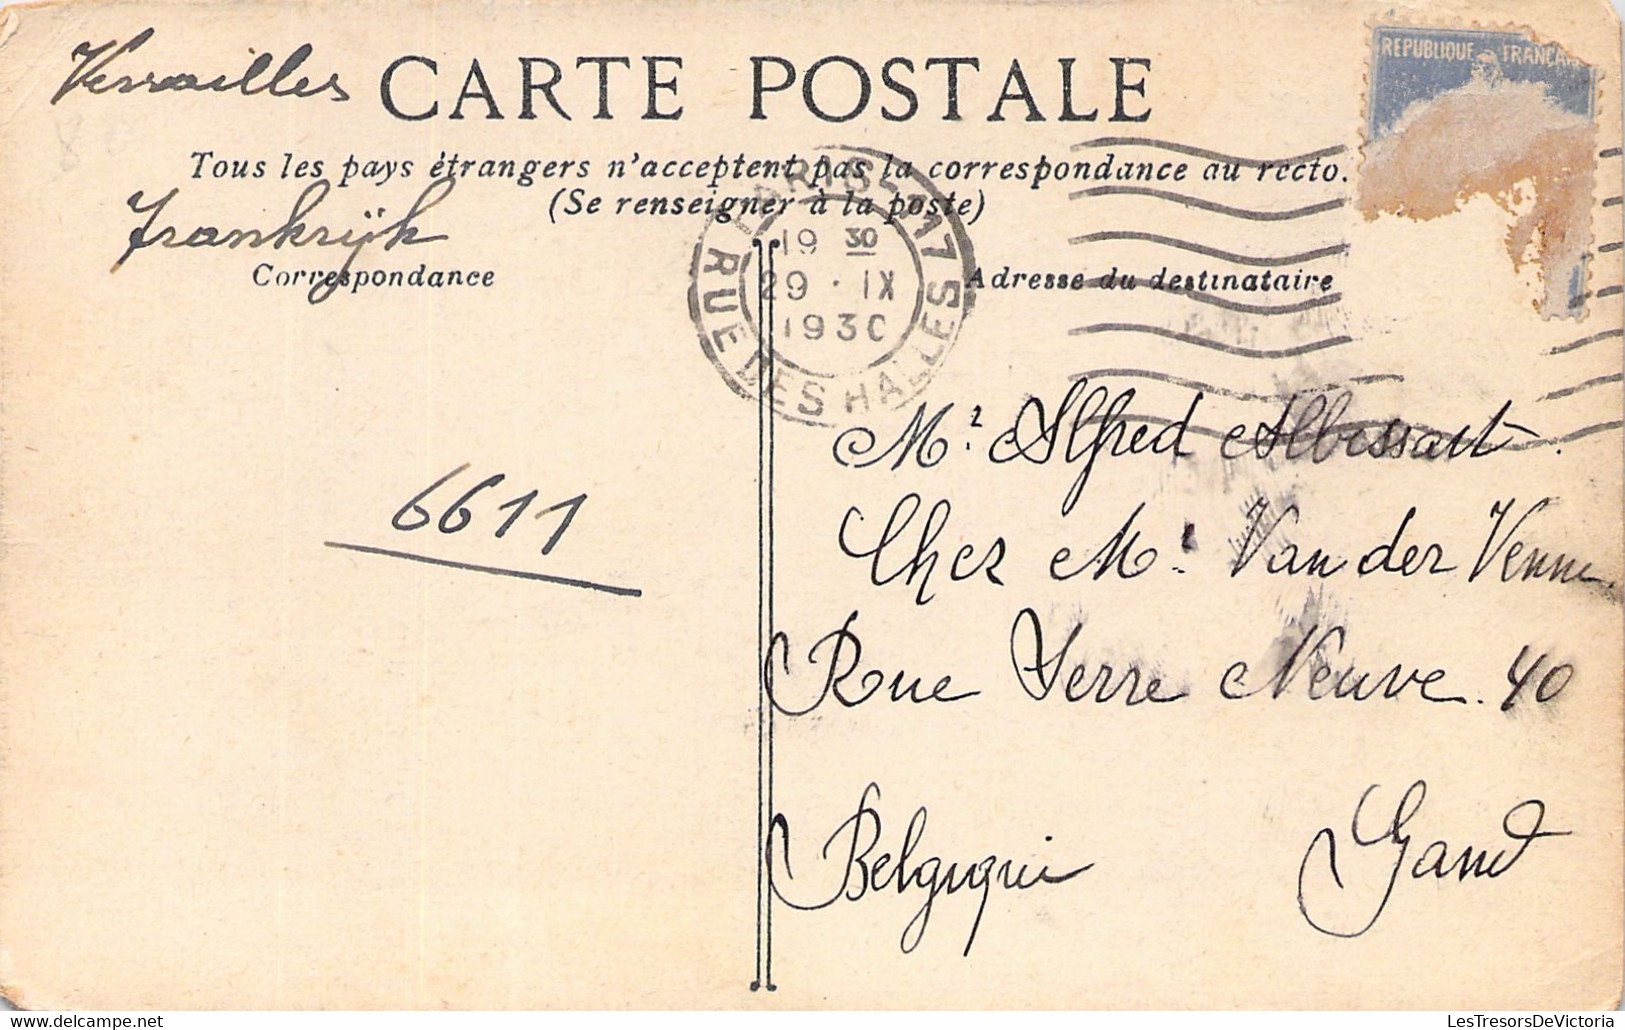 Versailles
CARTE POSTALE
REPUBLIQUE FRANÇAI
Tous les pays étrangers n'acceptent pas la correspondance au recto.
(Se renseigner à la poste)
Frankrijk
Correspondance
Adresse du destinataire
PARIS 117
19 30
29 · IX
1930
RUE DES HALLES
Mr. Alfred Albissart.
6611
Chez Mr. Van der Venne
Rue Terre Neuve. 40
Belgique
Gand
LesTresorsDeVictoria